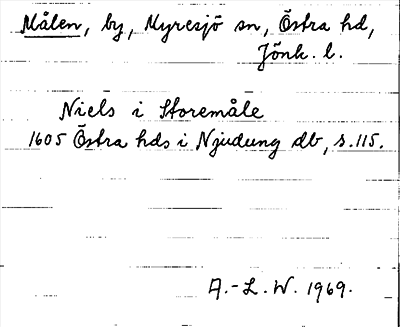 Målen, by, Myresjö sn, Östra hd,
Jönk. l.
Niels i Storemåle
1605 Östra hds i Njudung db, s. 115.
A.-L. W. 1969.